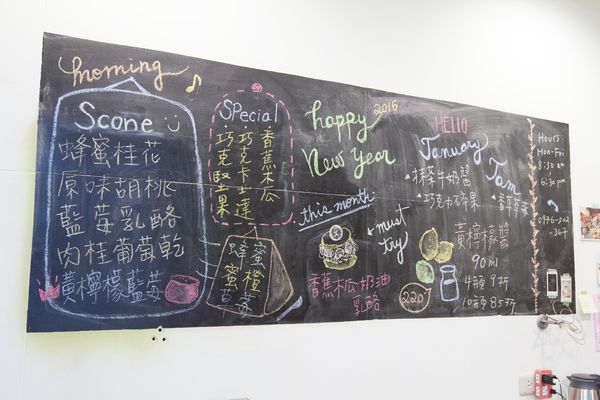 morning
Scone
蜂蜜桂花
原味胡桃
藍莓乳酪
肉桂葡萄乾
黃檸檬藍莓
SPecial
香蕉木瓜
巧克卡士達
巧克堅果
蜂蜜
蜜橙
草莓
happy 2015
New Year
this month
must
try
香蕉木瓜奶油
乳酪
220
HELLO
January
Jam
抹茶牛奶醬
巧克力石榴果
香草草莓
黃檸檬醬
90ml
4種 9折
10種 85折
Hours:
Mon-Fri
8:30 am
6:30 pm